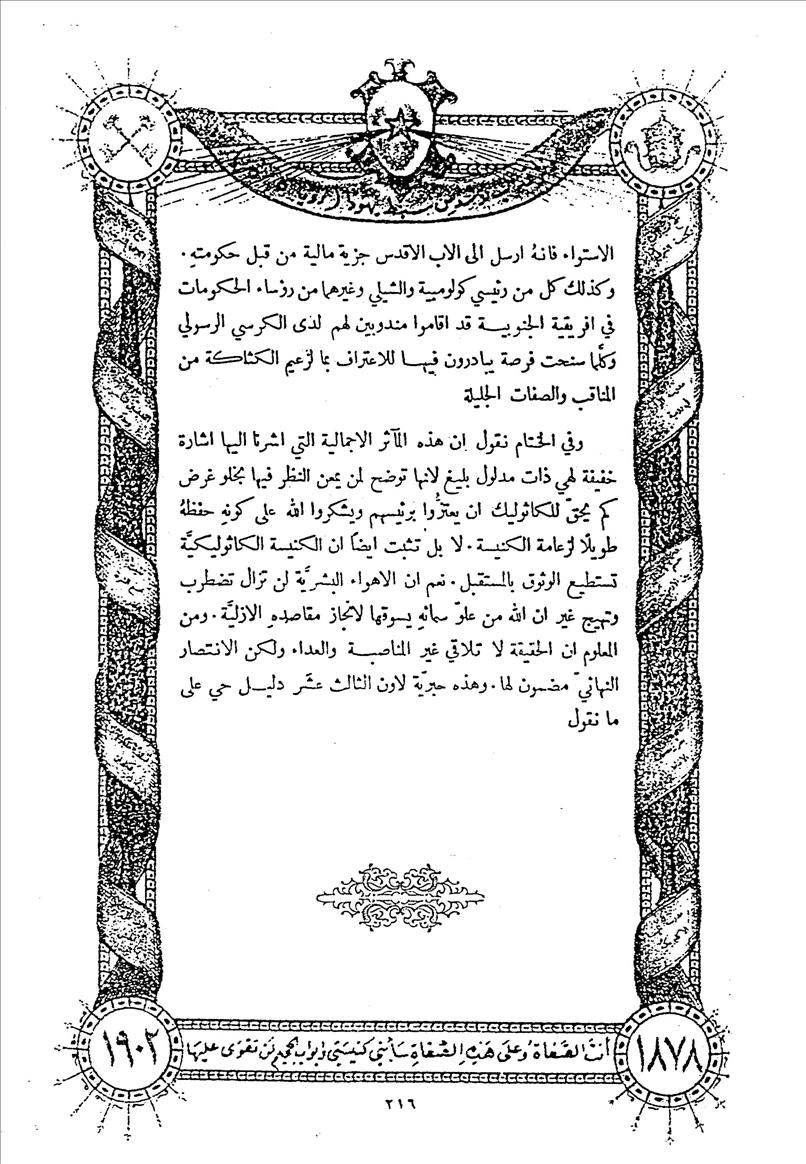 الاستواء فانهُ ارسل الى الاب الاقدس جزية مالية من قبل حكومتهِ.
وكذلك كل من رئيسي كولومبية والشيلي وغيرهما من رؤساء الحكومات
في افريقية الجنوبيـة قد اقاموا مندوبين لهم لدى الكرسي الرسولي
وكلَّما سنحت فرصة يبادرون فيهـا للاعتراف بما لزعيم الكثلكة من
المناقب والصفات الجليلة
وفي الختام نقول ان هذه المآثر الاجمالية التي اشرنا اليها اشارة
خفيفة لهي ذات مدلول بليغ لانها توضح لمن يمعن النظر فيها بخلو غرض
كم يحقّ للكاثوليك ان يعتزُّوا برئيسهم ويشكروا الله على كونهِ حفظهُ
طويلًا لزعامة الكنيسة. لا بل تثبت ايضًا ان الكنيسة الكاثوليكيَّة
تستطيع الوثوق بالمستقبل. نعم ان الاهواء البشريَّة لن تزال تضطرب
وتهيج غير ان الله من علوّ سمائهِ يسوقها لانجاز مقاصدهِ الازليَّة. ومن
المعلوم ان الحقيقة لا تلاقي غير المناصبـة والعداء ولكن الانتصار
النهائيّ مضمون لها. وهذه حبريّة لاون الثالث عشر دليـل حي على
ما نقول
١٩٠٢
أنت الصَّفاة وعلى هَذِهِ الصَّفاةِ سَأبني كنيسَتي وأبواب الجحيم لن تقوى عليهَا
١٨٧٨
٢١٦